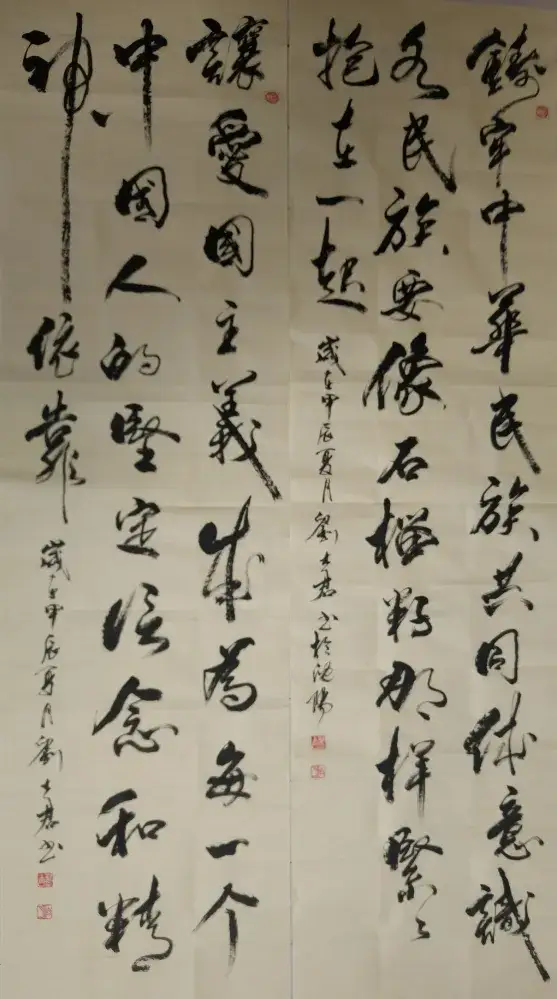 鑄牢中華民族共同体意識
各民族要像石榴籽那样緊緊
抱在一起
歲在甲辰夏月劉大君书於沈陽
讓愛國主義成為每一个
中國人的堅定信念和精
神依靠
歲在甲辰夏月劉大君书